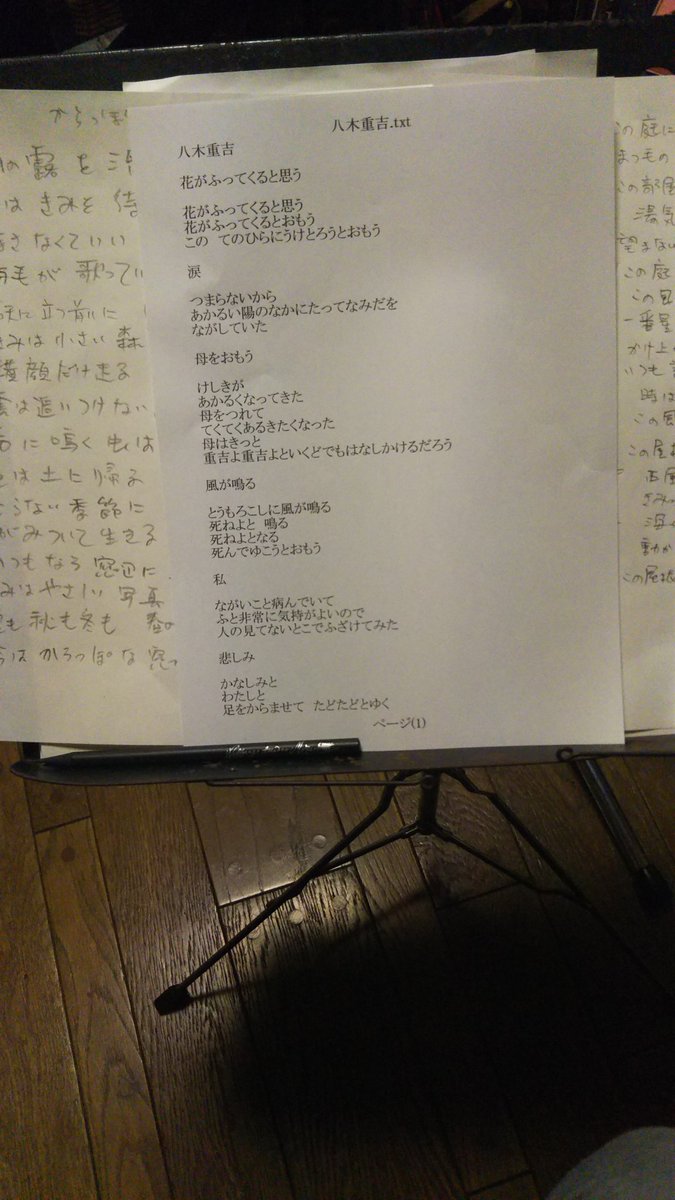 八木重吉.txt
八木重吉
花がふってくると思う
花がふってくると思う
花がふってくるとおもう
この　てのひらにうけとろうとおもう
涙
つまらないから
あかるい陽のなかにたってなみだを
ながしていた
母をおもう
けしきが
あかるくなってきた
母をつれて
てくてくあるきたくなった
母はきっと
重吉よ重吉よといくどでもはなしかけるだろう
風が鳴る
とうもろこしに風が鳴る
死ねよと　鳴る
死ねよとなる
死んでゆこうとおもう
私
ながいこと病んでいて
ふと非常に気持がよいので
人の見てないとこでふざけてみた
悲しみ
かなしみと
わたしと
足をからませて　たどたどとゆく
ページ(1)
の露を
はきみを待
きなくていい
毛が歌ってい
立つ前に
みは小さい森
横顔だけ走る
雲は追いつけない
に鳴く虫は
は土に帰る
らない季節に
がみついて生きる
いつもなら窓辺に
みはやさしい写真
も秋も冬も春
今はからっぽな窓
この庭に
まつ毛の
この部屋
湯気
望まない
この庭
この風
一番星
かけ上
いつも
時は
この風
この屋根
西風
きみ
海
動か
この屋根